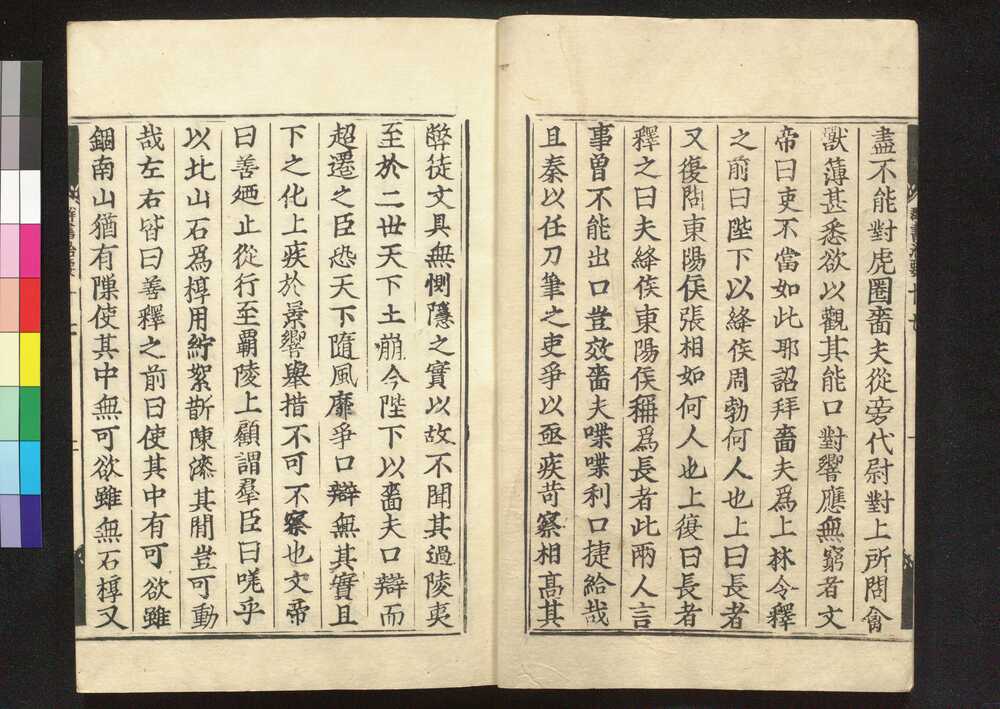 盡不能對虎圈嗇夫從旁代尉對上所問禽
獸薄甚悉欲以觀其能口對響應無窮者文
帝曰吏不當如此耶詔拜嗇夫爲上林令釋
之前曰陛下以絳侯周勃何人也上曰長者
又復問東陽侯張相如何人也上復曰長者
釋之曰夫絳侯東陽侯稱爲長者此兩人言
事曾不能出口豈效嗇夫喋喋利口捷給哉
且秦以任刀筆之吏爭以亟疾苛察相髙其
弊徒文具無惻隱之實以故不聞其過陵夷
至於二世天下土崩今陛下以嗇夫口辯而
超遷之臣恐天下隨風靡爭口辯無其實且
下之化上疾於景響舉措不可不察也文帝
曰善廼止從行至霸陵上顧謂羣臣曰嗟乎
以北山石爲椁用紵絮斮陳漆其間豈可動
哉左右皆曰善釋之前曰使其中有可欲雖
錮南山猶有隙使其中無可欲雖無石椁又